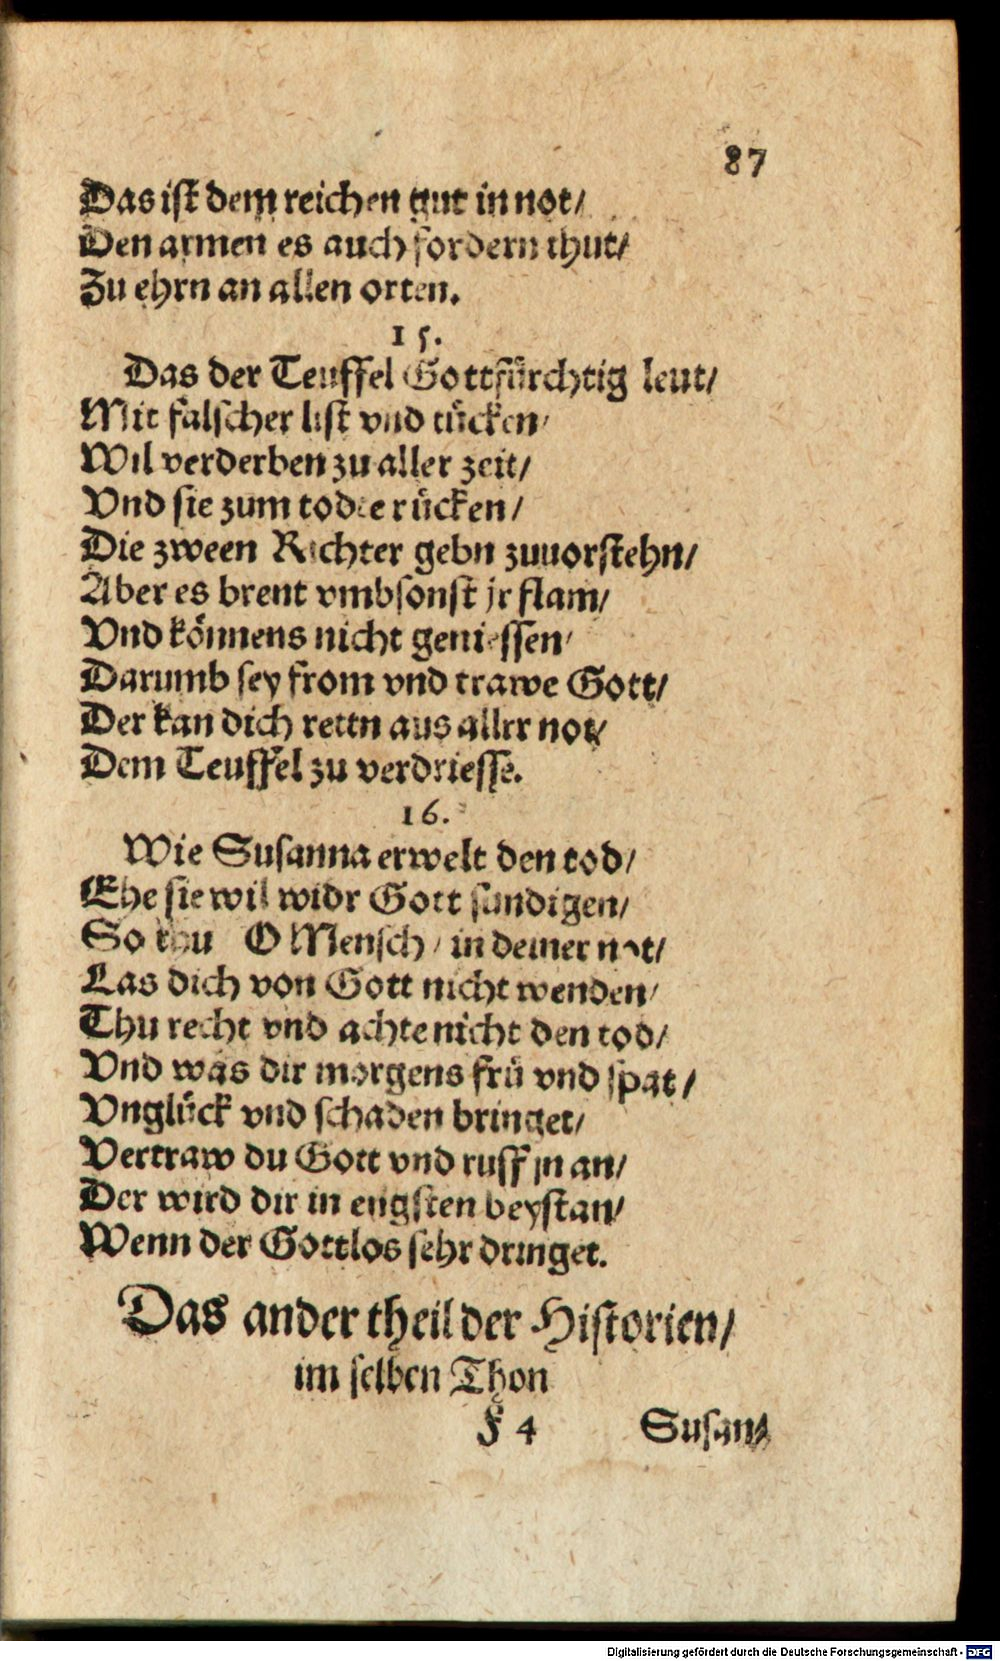 87
Das ist dem reichen gut in not/
Den armen es auch fordern thut/
Zu ehrn an allen orten.
15.
Das der Teuffel Gottfürchtig leut/
Mit falscher list vnd tücken/
Wil verderben zu aller zeit/
Vnd sie zum todte rücken/
Die zween Richter gebn zuuorstehn/
Aber es brent vmbsonst jr flam/
Vnd können̄s nicht geniessen/
Darumb sey from vnd trawe Gott/
Der kan dich rettn aus aller not/
Dem Teuffel zu verdriesse.
16.
Wie Susanna erwelt den tod/
Ehe sie wil widr Gott sundigen/
So thu O Mensch / in deiner not/
Las dich von Gott nicht wenden/
Thu recht vnd achte nicht den tod/
Vnd was dir morgens frü vnd spat/
Vnglück vnd schaden bringet/
Vertraw du Gott vnd ruff jn an/
Der wird dir in engsten beystan/
Wenn der Gottlos sehr dringet.
Das ander theil der Historien/
im selben Thon
F 4 Susan/
Digitalisierung gefördert durch die Deutsche Forschungsgemeinschaft - DFG